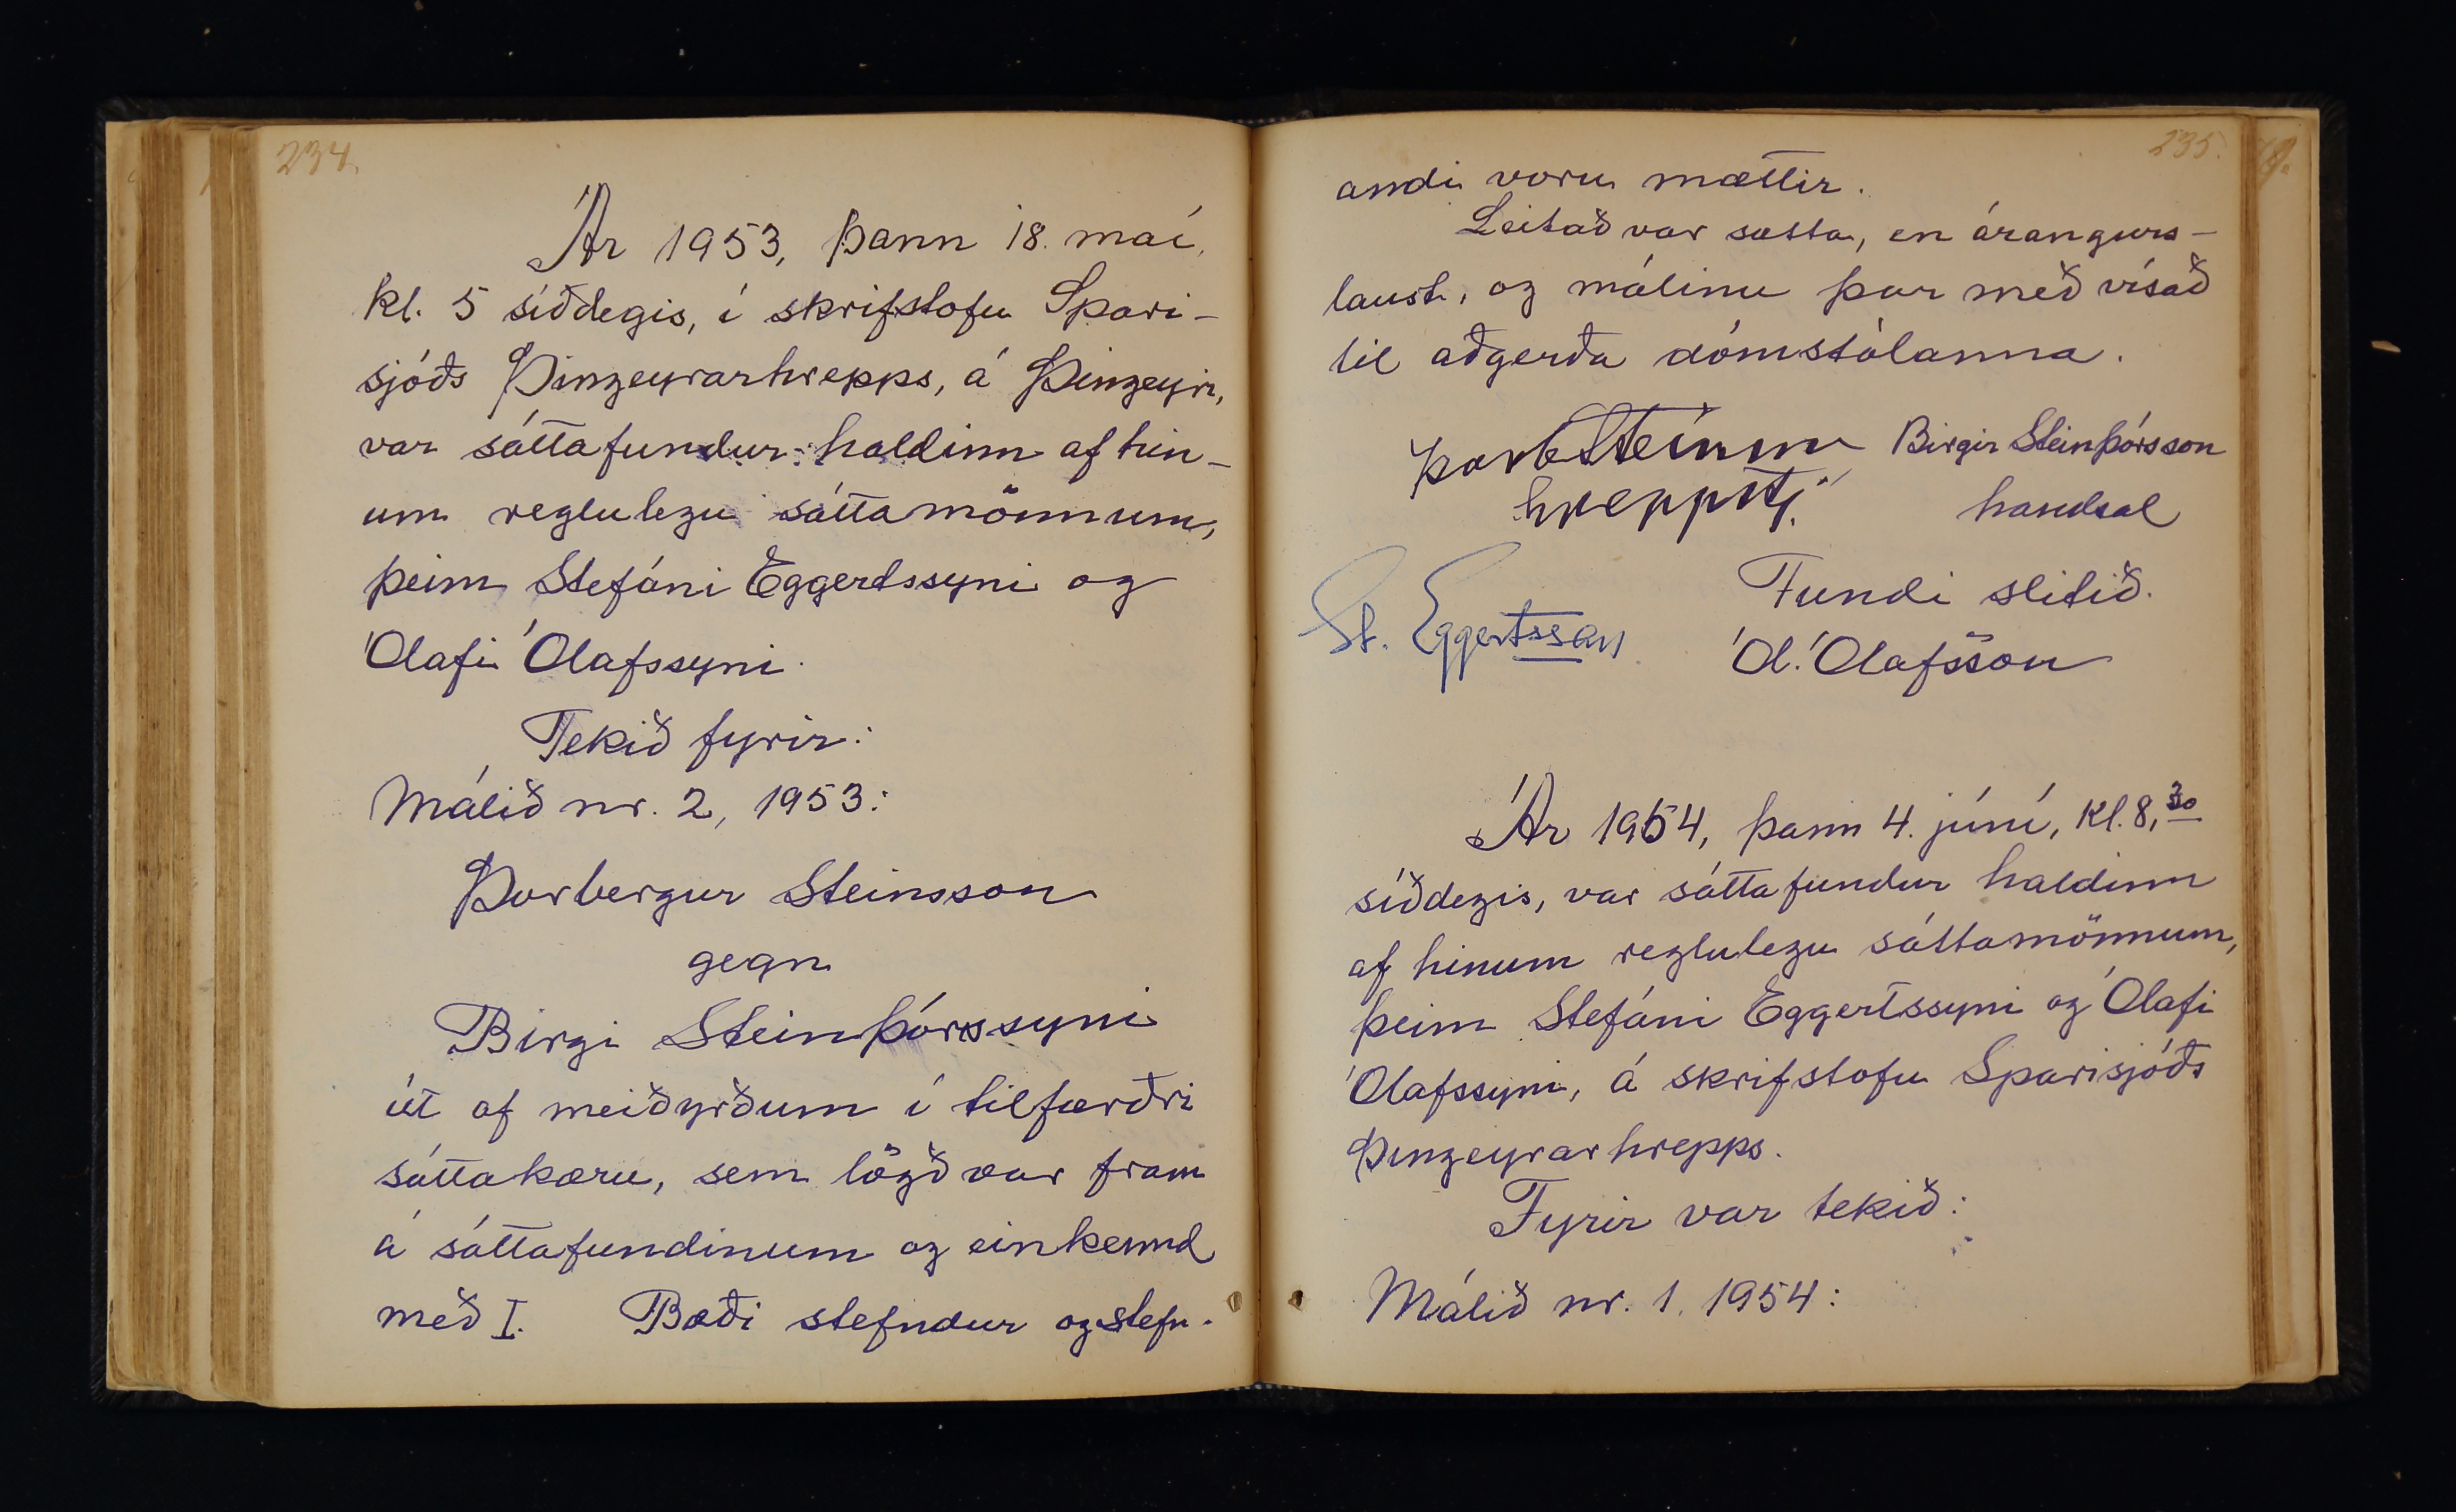 234.
Ár 1953, þann 18. maí,
kl. 5 síðdegis, í skrifstofu Spari-
sjóðs Þingeyrarhrepps, á Þingeyri,
var sáttafundur haldinn af hin-
um reglulegu sáttamönnum,
þeim Stefáni Eggertssyni og
Ólafi Ólafssyni.
Tekið fyrir:
Málið nr. 2, 1953:
Þorbergur Steinsson
gegn
Birgi Steinþórssyni
út af meiðyrðum í tilfærðri
sáttakæru, sem lögð var fram
á sáttafundinum og einkennd
með I. Bæði stefndur og stefn-
235.
andi voru mættir.
Leitað var sátta, en árangurs-
laust, og málinu þar með vísað
til aðgerða dómstólanna.
Þorb Steinss Birgir Steinþórsson
hreppstj. handsal
Fundi slitið.
St. Eggertsson Ól. Ólafsson
Ár 1954, þann 4. júní, kl. 8,30
síðdegis, var sáttafundur haldinn
af hinum reglulegu sáttamönnum,
þeim Stefáni Eggertssyni og Ólafi
Ólafssyni, á skrifstofu Sparisjóðs
Þingeyrarhrepps.
Fyrir var tekið:
Málið nr. 1. 1954: